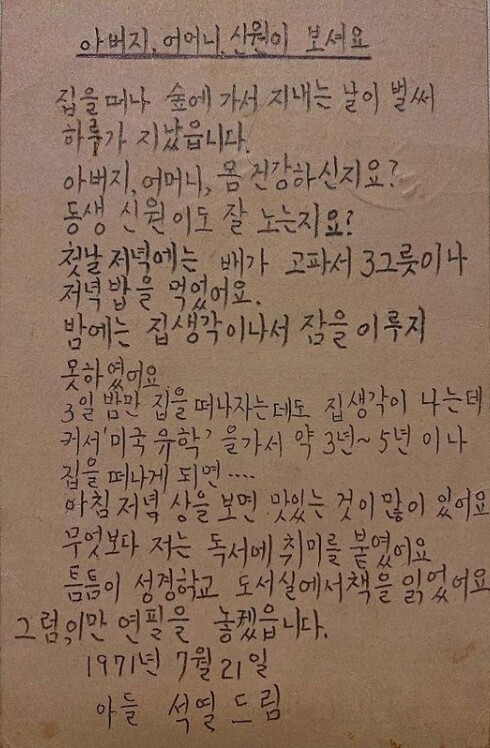 아버지, 어머니, 신원이 보셔요
집을 떠나 숲에 가서 지내는 날이 벌써
하루가 지났읍니다.
아버지, 어머니, 몸 건강하신지요?
동생 신원이도 잘 노는지요?
첫날 저녁에는 배가 고파서 3그릇이나
저녁밥을 먹었어요.
밤에는 집생각이나서 잠을 이루지
못하였어요
3일 밤만 집을 떠나자는데도 집생각이 나는데
커서 '미국 유학' 을가서 약 3년~5년 이나
집을 떠나게 되면····
아침 저녁 상을 보면 맛있는 것이 많이 있어요
무엇보다 저는 독서에 취미를 붙였어요
틈틈이 성경학교 도서실에서책을 읽었어요
그럼,이만 연필을 놓겠읍니다.
1971년 7월 21일
아들 석열 드림